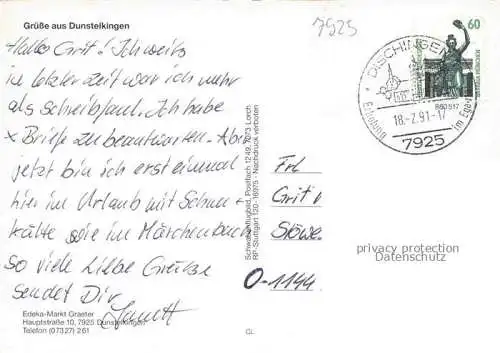 Grüße aus Dunstelkingen
7925
60
Hallo Grit! Ich weiß
in letzter Zeit war ich mehr
als schreibfaul. Ich habe
x Briefe zu beantworten. Aber
jetzt bin ich erst einmal
hier im Urlaub mit Schnee +
Kälte wie im Märchenbuch
so viele liebe Grüße
sendet Dir
DISCHINGEN
860 517
18.-2.91-17
Erholung im Ega
7925
Schwabenflugbild, Postfach 1249, 7073 Lorch
RP-Stuttgart 120-16975 - Nachdruck verboten
Frl
Grit
Stöwe
O-1144
privacy protection
Datenschutz
Edeka-Markt Graeter
Hauptstraße 10, 7925 Dunstelkingen
Telefon (07327) 261